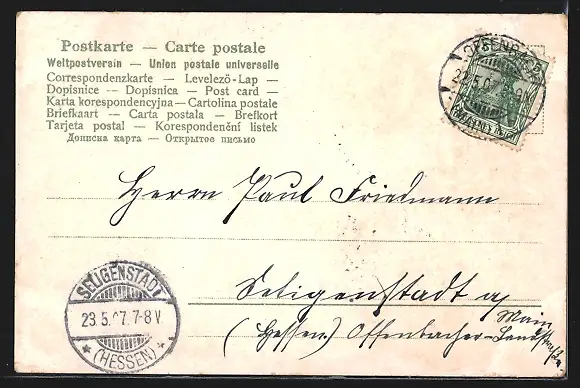 Postkarte — Carte postale
Weltpostverein — Union postale universelle
Correspondenzkarte — Levelező-Lap —
Dopisnice — Dopisnica — Post card —
Karta korespondencyjna — Cartolina postale
Briefkaart — Carta postala — Brefkort
Tarjeta postal — Korespondenční listek
Дописна карта — Открытое письмо
OFFENBACH
23.5.07
Herrn Paul Friedmann
Seligenstadt a/
Main
(Hessen.) Offenbacher-Landstraße
SELIGENSTADT
23.5.07. 7-8 V.
(HESSEN)